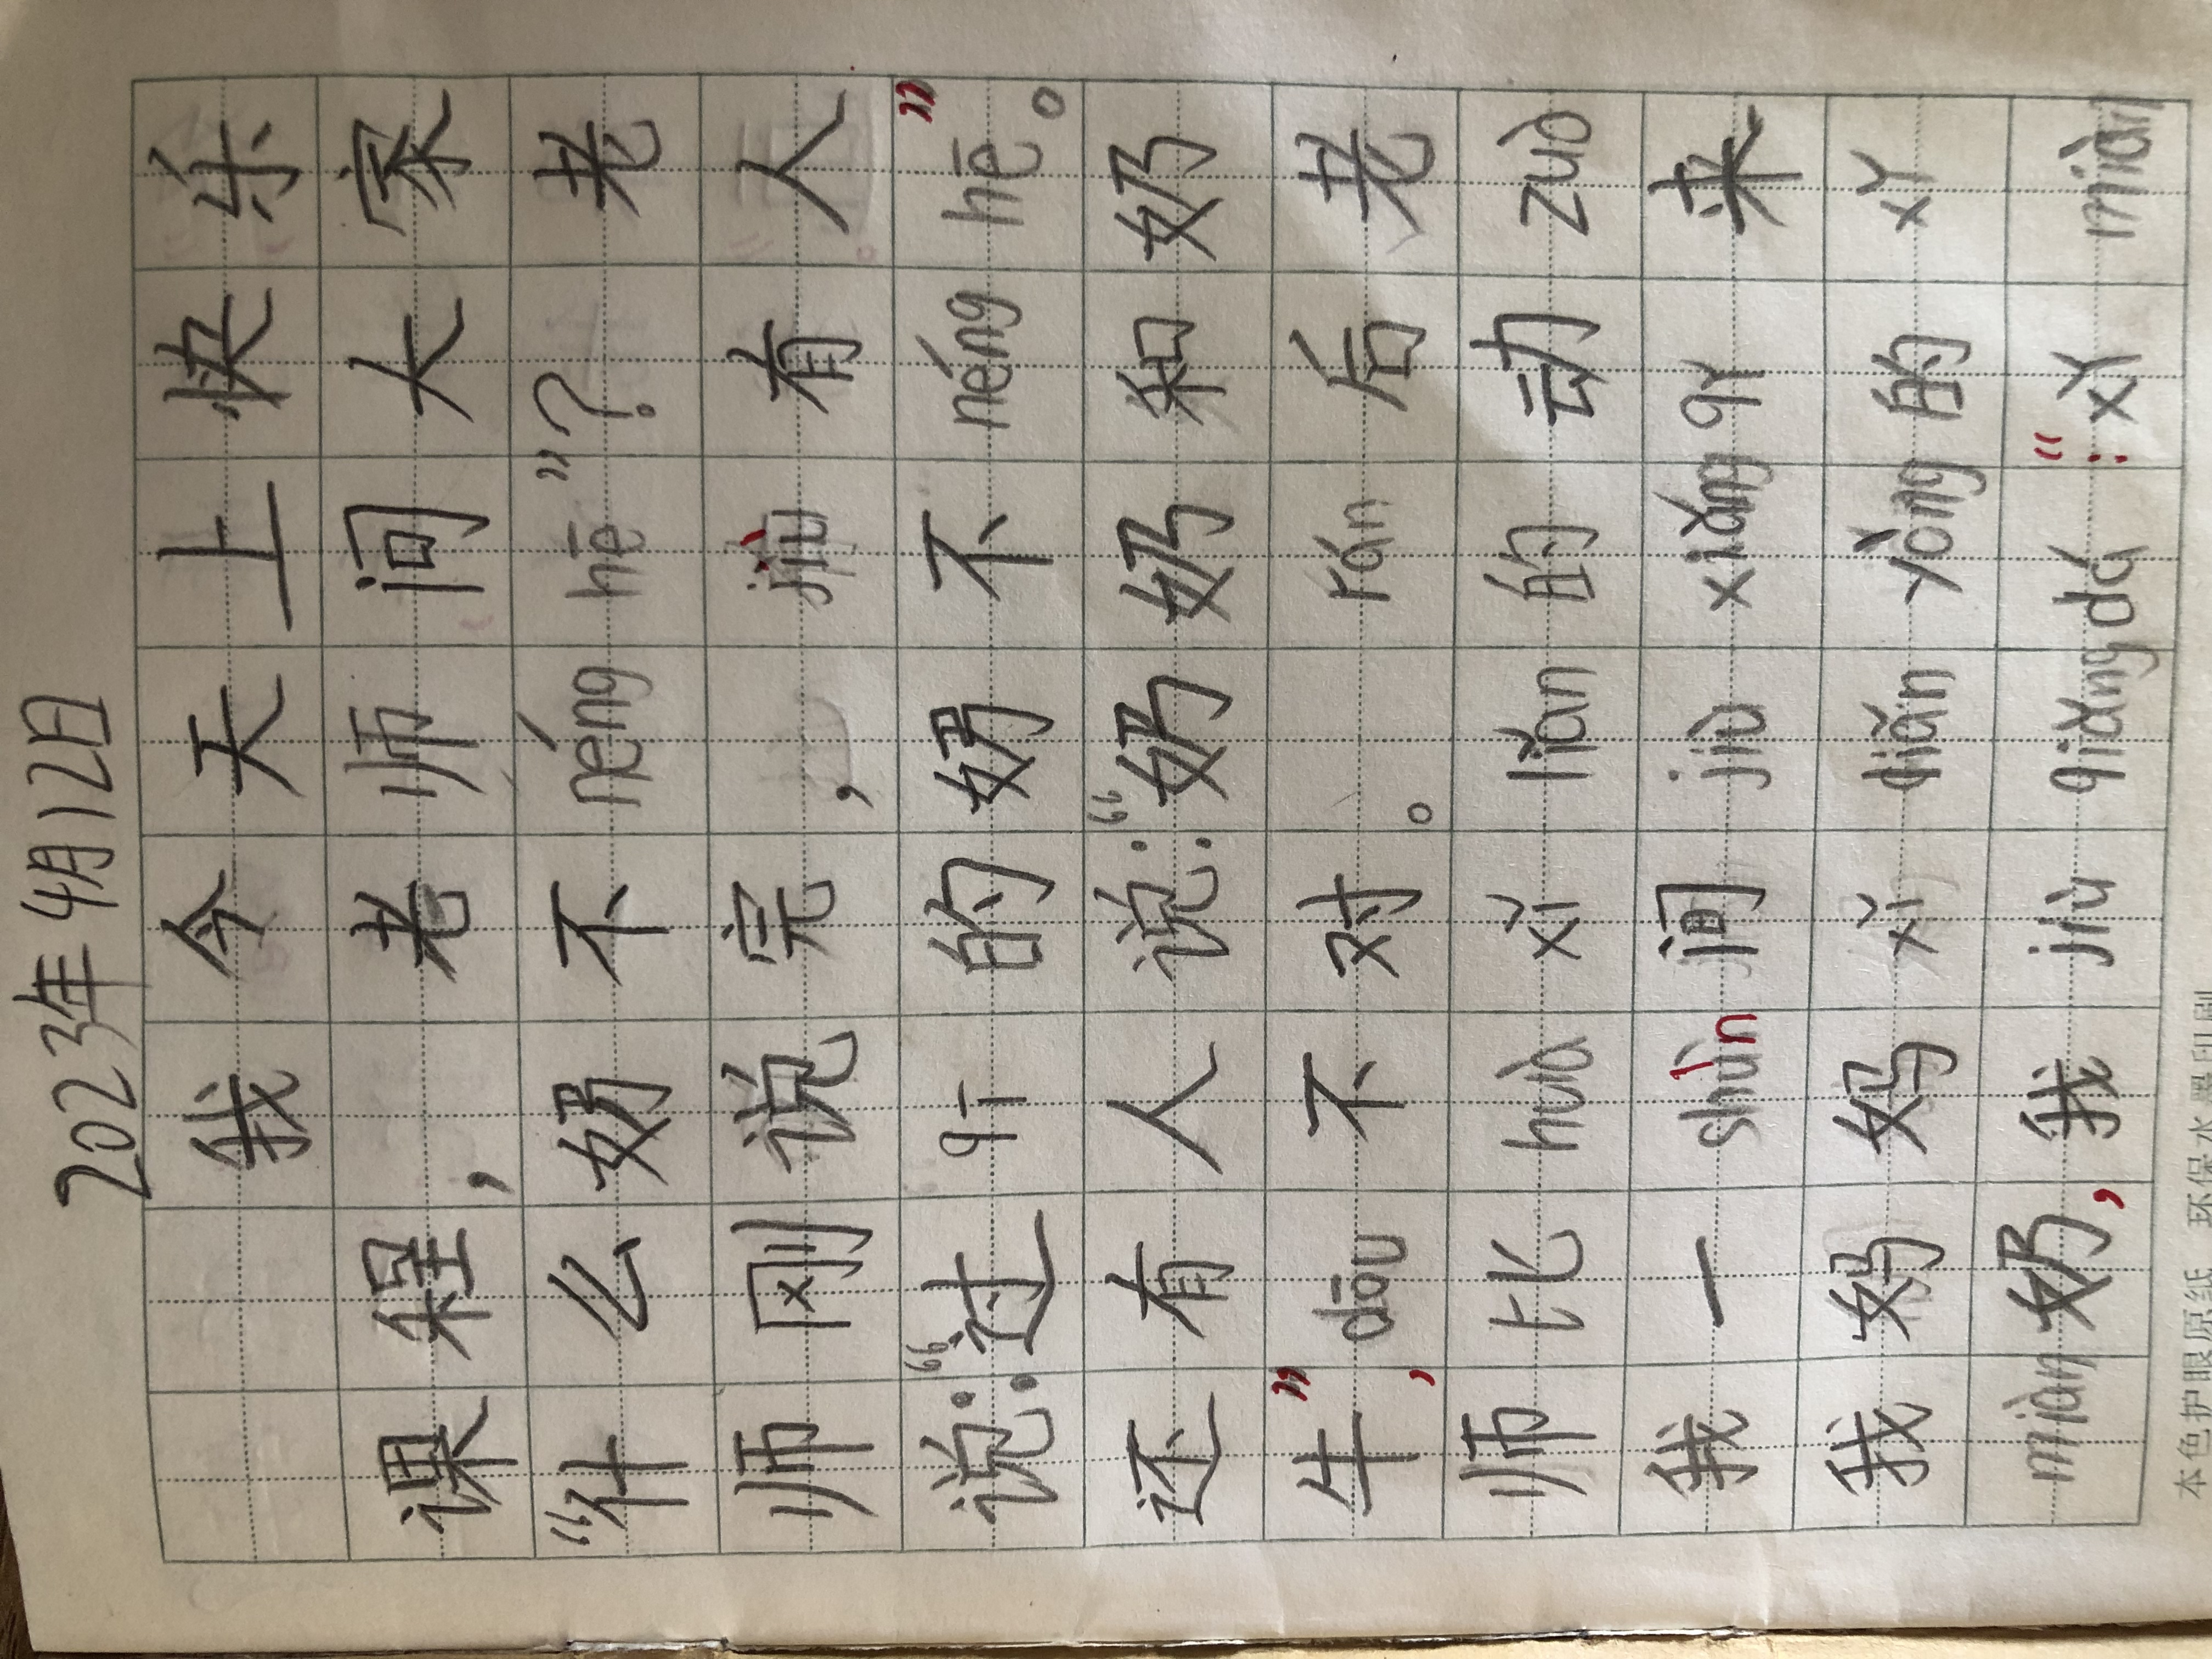 2023年4月12日
我今天上快乐
课程，老师问大家
“什么奶不néng hē”？老
师刚说完，jiù有人
说：“过qī的奶不néng hē。”
还有人说：“奶奶和奶
牛”，dōu不对。rán后老
师比huà xǐ liǎn的动zuò
我一shùn间jiù xiǎng qǐ来
我妈妈xǐ liǎn yòng的xǐ
miàn奶，我jiù qiǎng dá：“xǐ miàn
本色护眼原纸 环保水墨印刷